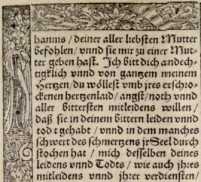 hannis / deiner aller liebsten Mutter
befohlen / vnnd sie mir zu einer Mut-
ter geben hast. Ich bitt dich andech-
tigklich vnnd von gantzem meinem
Hertzen / du wöllest vmb jres erschro-
ckenen hertzenlaid / angst / noth vnnd
aller bittersten mitleidens willen /
daß sie in deinem bittern leiden vnnd
tod tgehabt / vnnd in dem manches
schwert des schmertzens jr Seel durch
stochen hat / mich desselben deines
leidens vnnd Todes / wie auch jhres
mitleidens vnnd jhrer verdiensten /